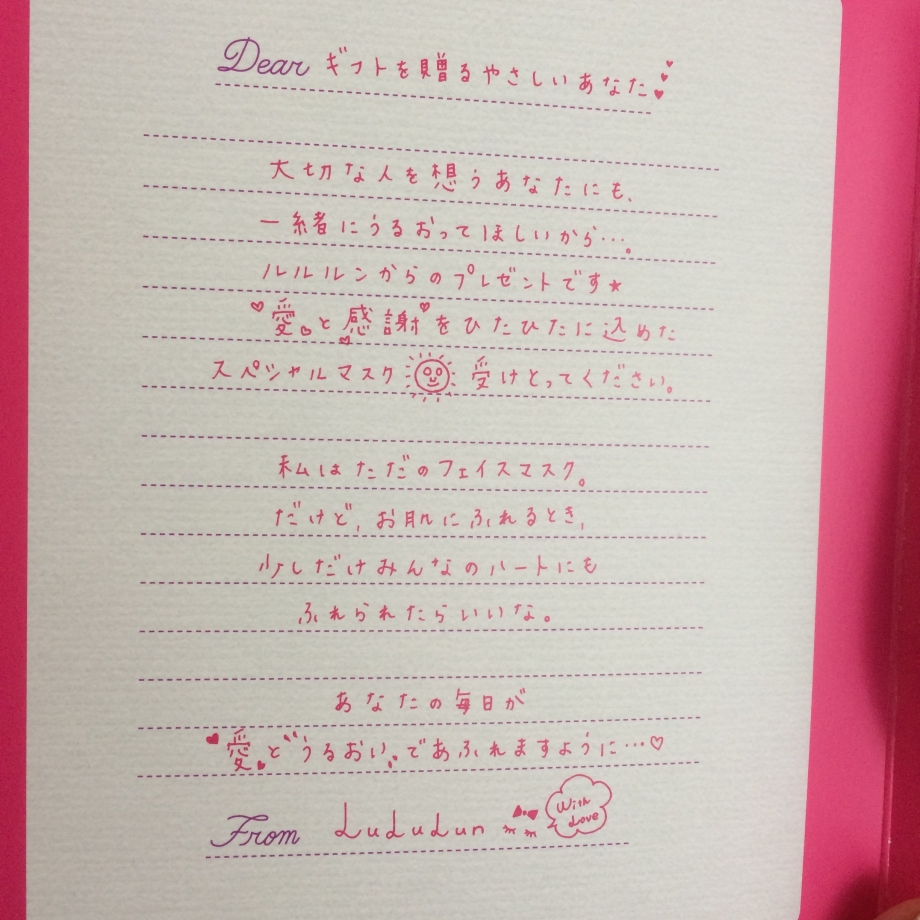 Dear ギフトを贈るやさしいあなた
大切な人を想うあなたにも、
一緒にうるおってほしいから…。
ルルルンからのプレゼントです★
愛と感謝をひたひたに込めた
スペシャルマスク 受けとってください。
私はただのフェイスマスク。
だけど、お肌にふれるとき、
少しだけみんなのハートにも
ふれられたらいいな。
あなたの毎日が
愛と“うるおい”であふれますように…♡
From LuLuLun
With
Love